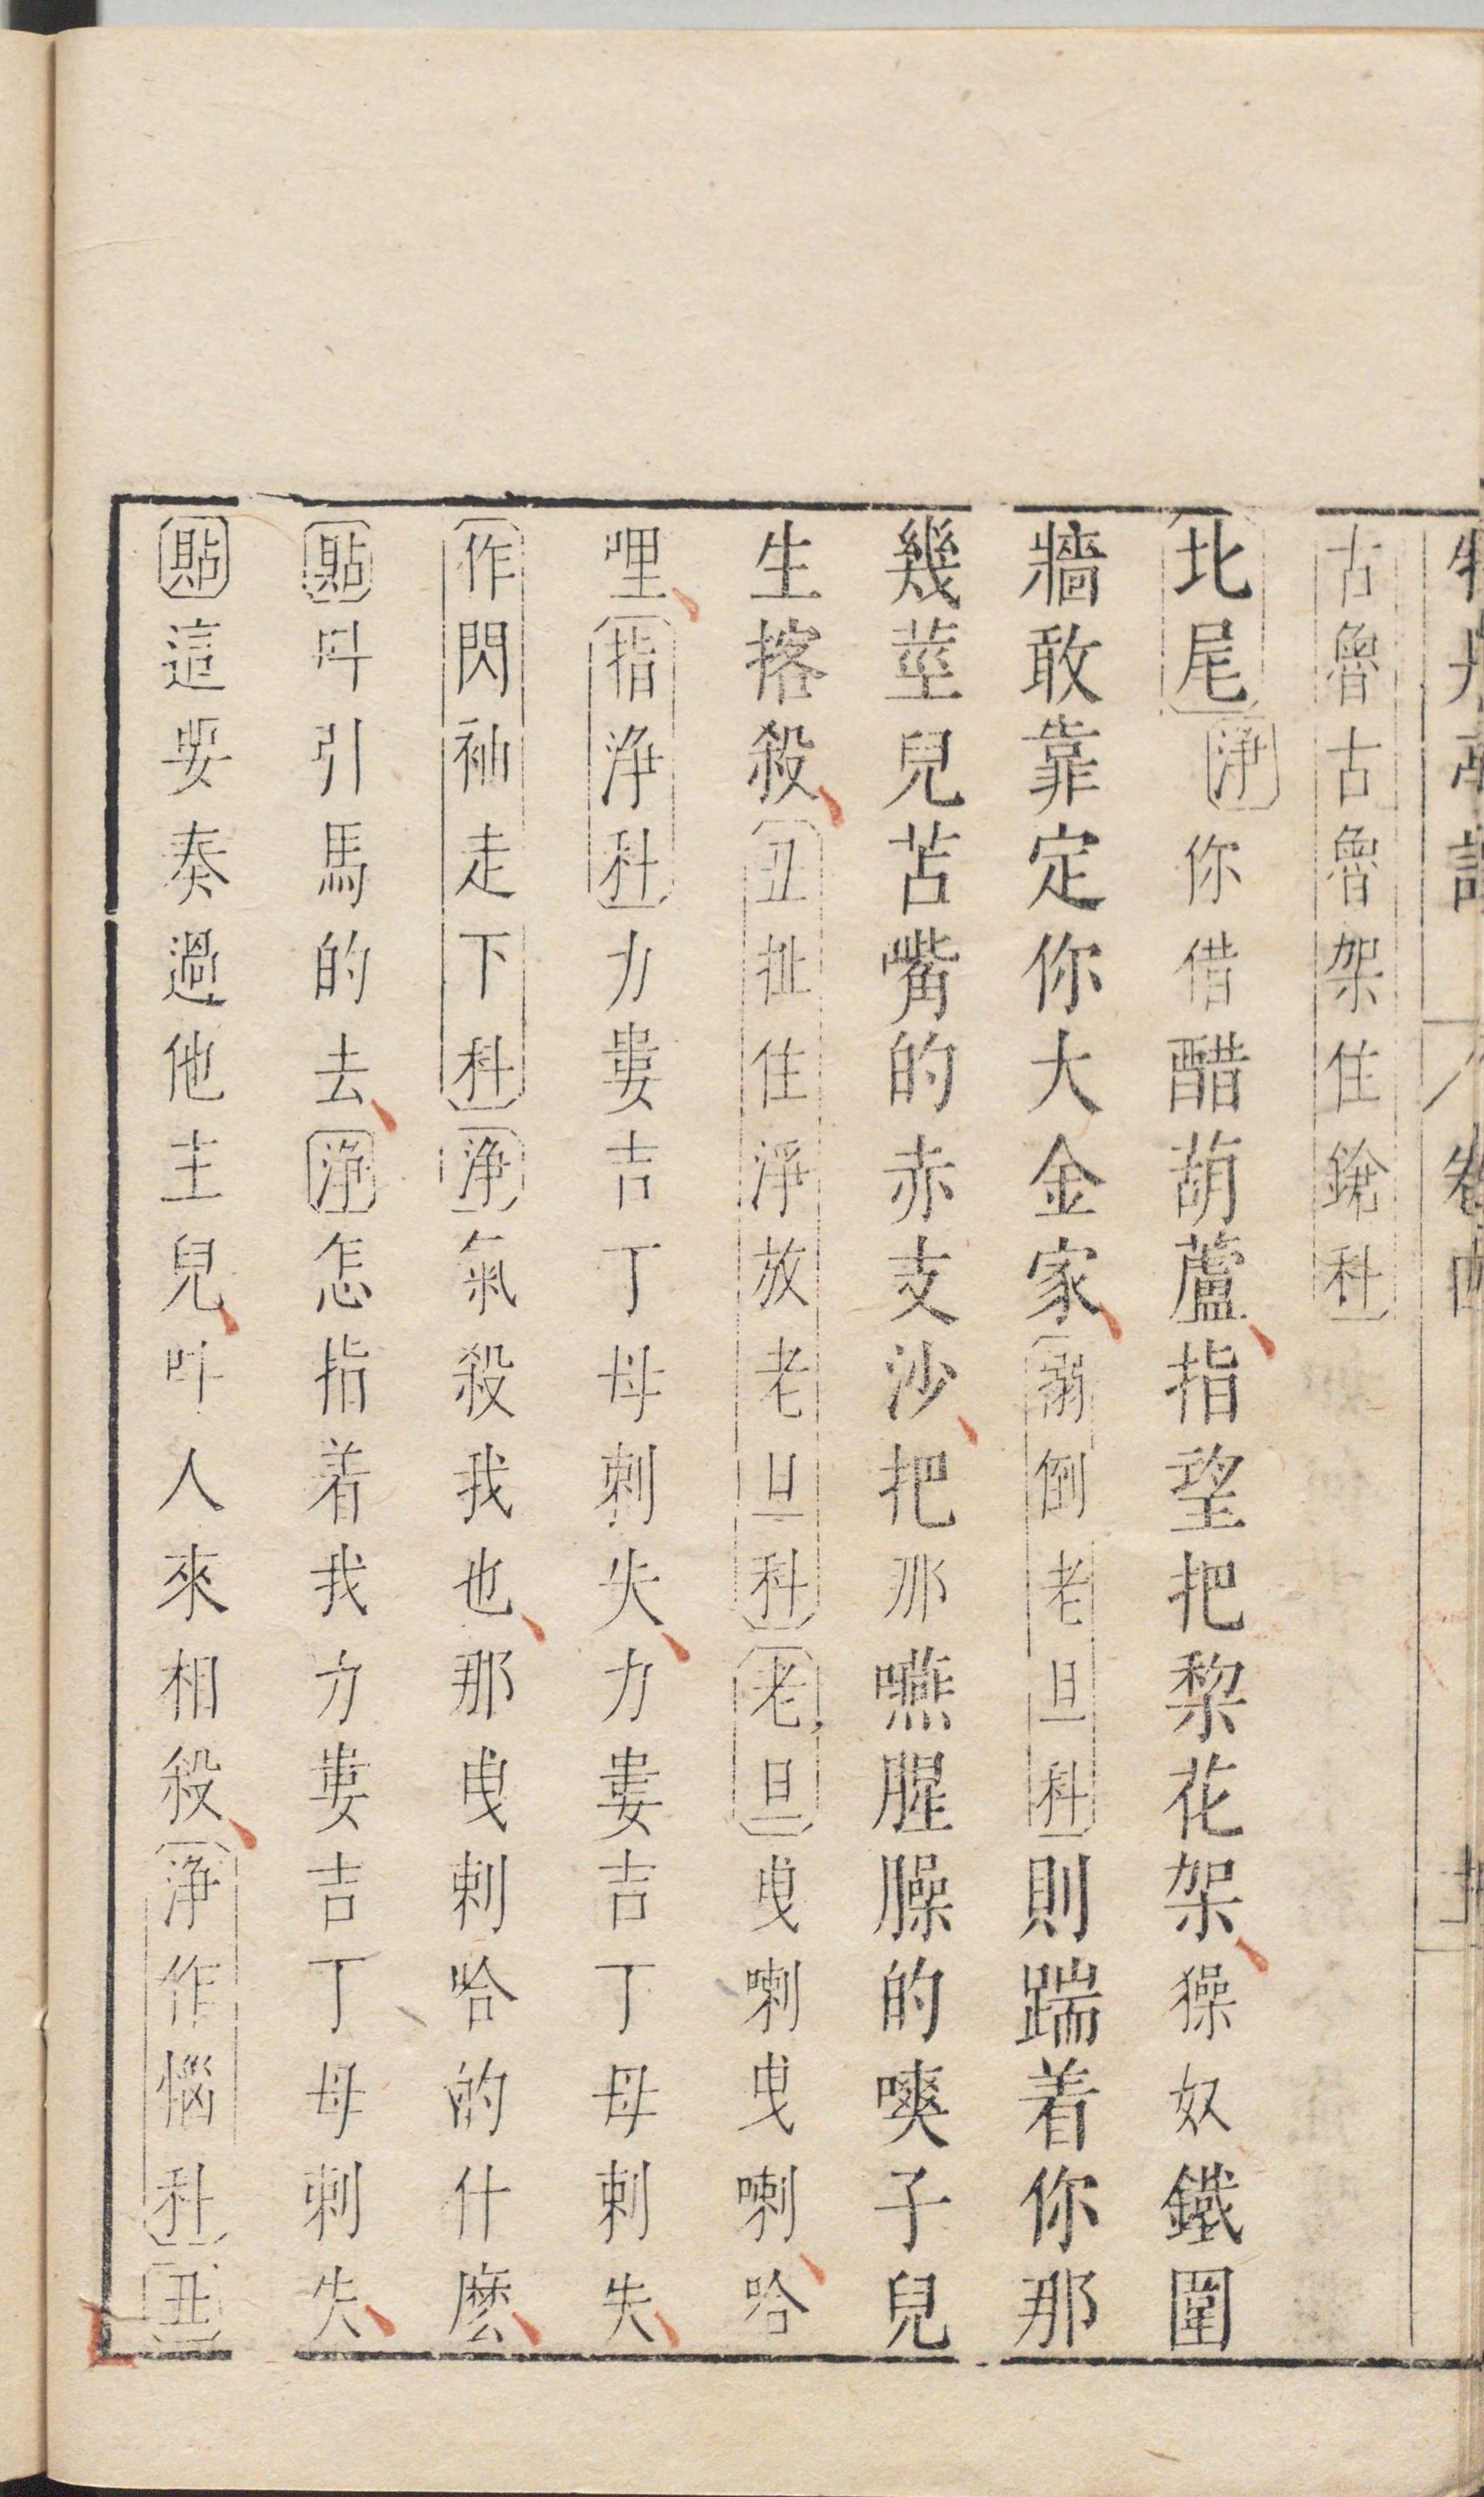 牡丹亭記 卷四
古魯古魯架住鎗科
北尾淨你借醋葫蘆指望把棃花架獋奴鐵圍
牆敢靠定你大金家搦倒老旦科則踹着你那
幾莖兒苫嘴的赤支沙把那嚥腥臊的嗓子兒
生揢殺丑扯住淨放老旦科老旦曳喇曳喇哈
哩指淨科力婁吉丁母剌失力婁吉丁母剌失
作閃袖走下科淨氣殺我也那曳剌哈的什麽
貼呌引馬的去淨怎指着我力婁吉丁母剌失
貼這要奏過他主兒呌人來相殺淨作惱科丑